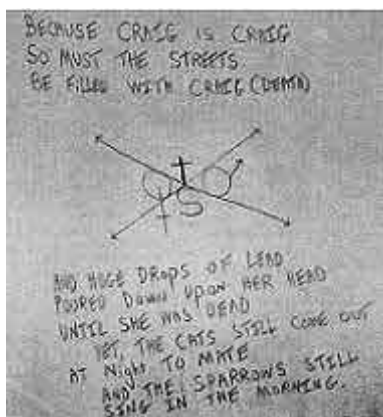 BECAUSE CRAIG IS CRAIG
SO MUST THE STREETS
BE FILLED WITH CRAIG (DEATH)
S
AND HUGE DROPS OF LEAD
POURED DOWN UPON HER HEAD
UNTIL SHE WAS DEAD
YET, THE CATS STILL COME OUT
AT Night TO MATE
AND THE SPARROWS STILL
SING IN THE MORNING.